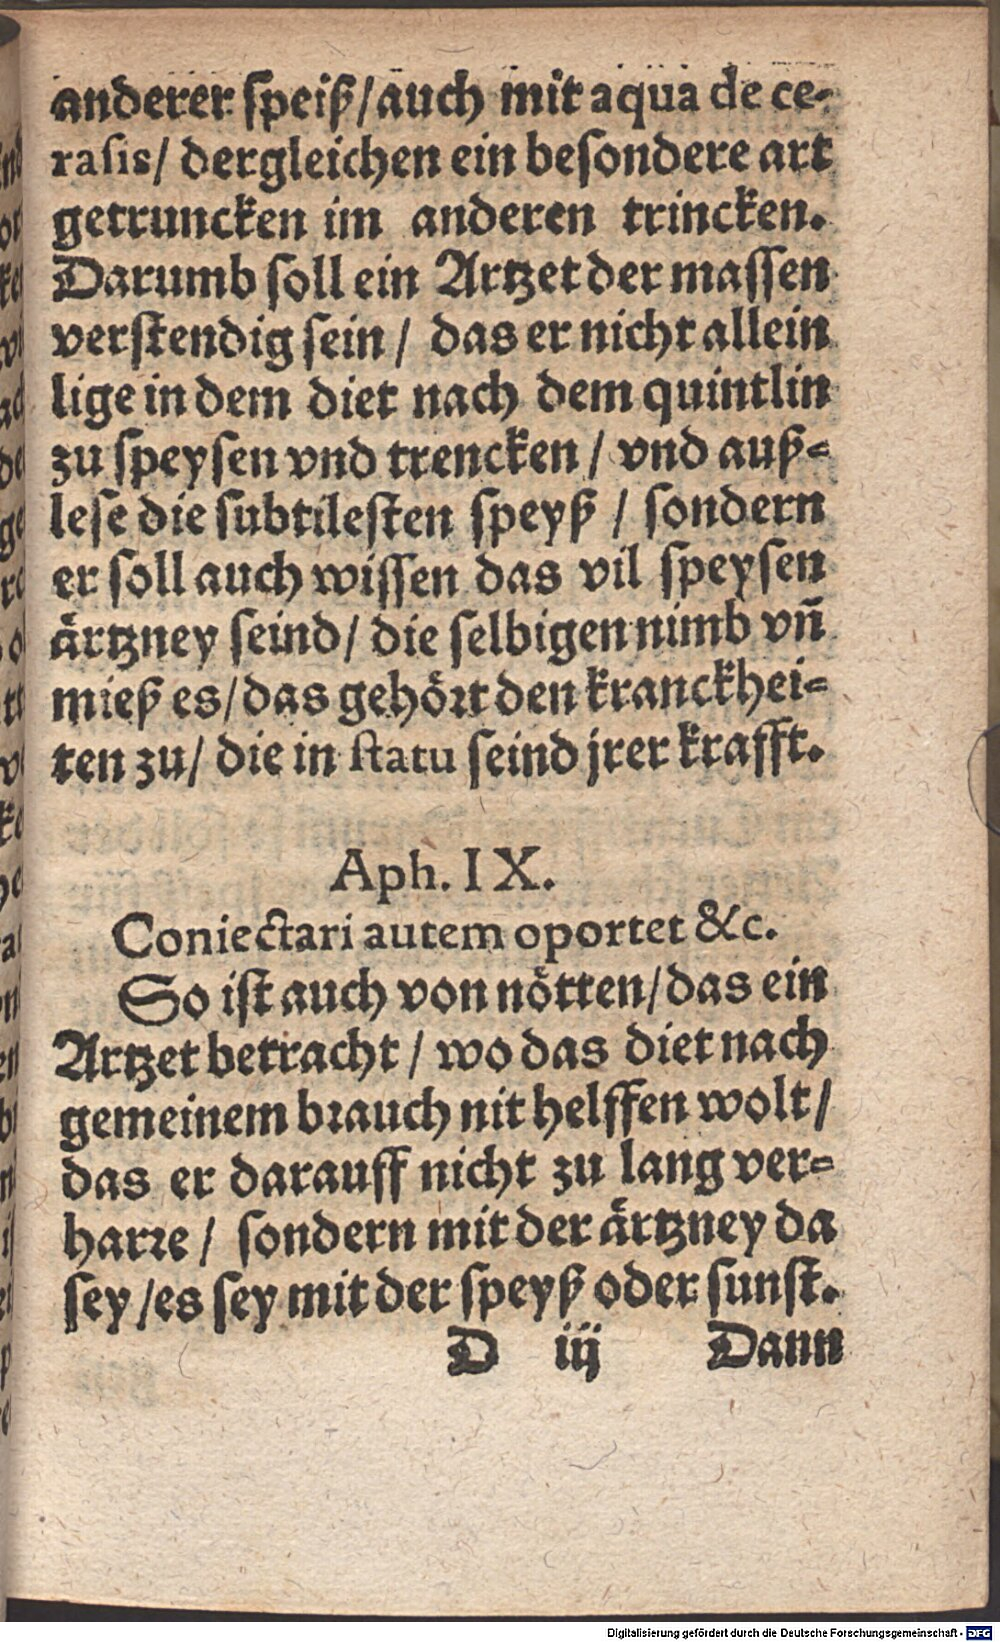 anderer speiß/auch mit aqua de ce-
rasis/ dergleichen ein besondere art
getruncken im anderen trincken.
Darumb soll ein Artzet der massen
verstendig sein / das er nicht allein
lige in dem diet nach dem quintlin
zu speysen vnd trencken / vnd auß-
lese die subtilesten speyß / sondern
er soll auch wissen das vil speysen
ärtzney seind/ die selbigen nimb vñ
mieß es/das gehört den kranckhei-
ten zu/ die in statu seind jrer krafft.
Aph. IX.
Coniectari autem oportet &c.
So ist auch von nötten/das ein
Artzet betracht / wo das diet nach
gemeinem brauch nit helffen wolt/
das er darauff nicht zu lang ver-
harre / sondern mit der ärtzney da
sey/es sey mit der speyß oder sunst.
D iij Dann
Digitalisierung gefördert durch die Deutsche Forschungsgemeinschaft - DFG